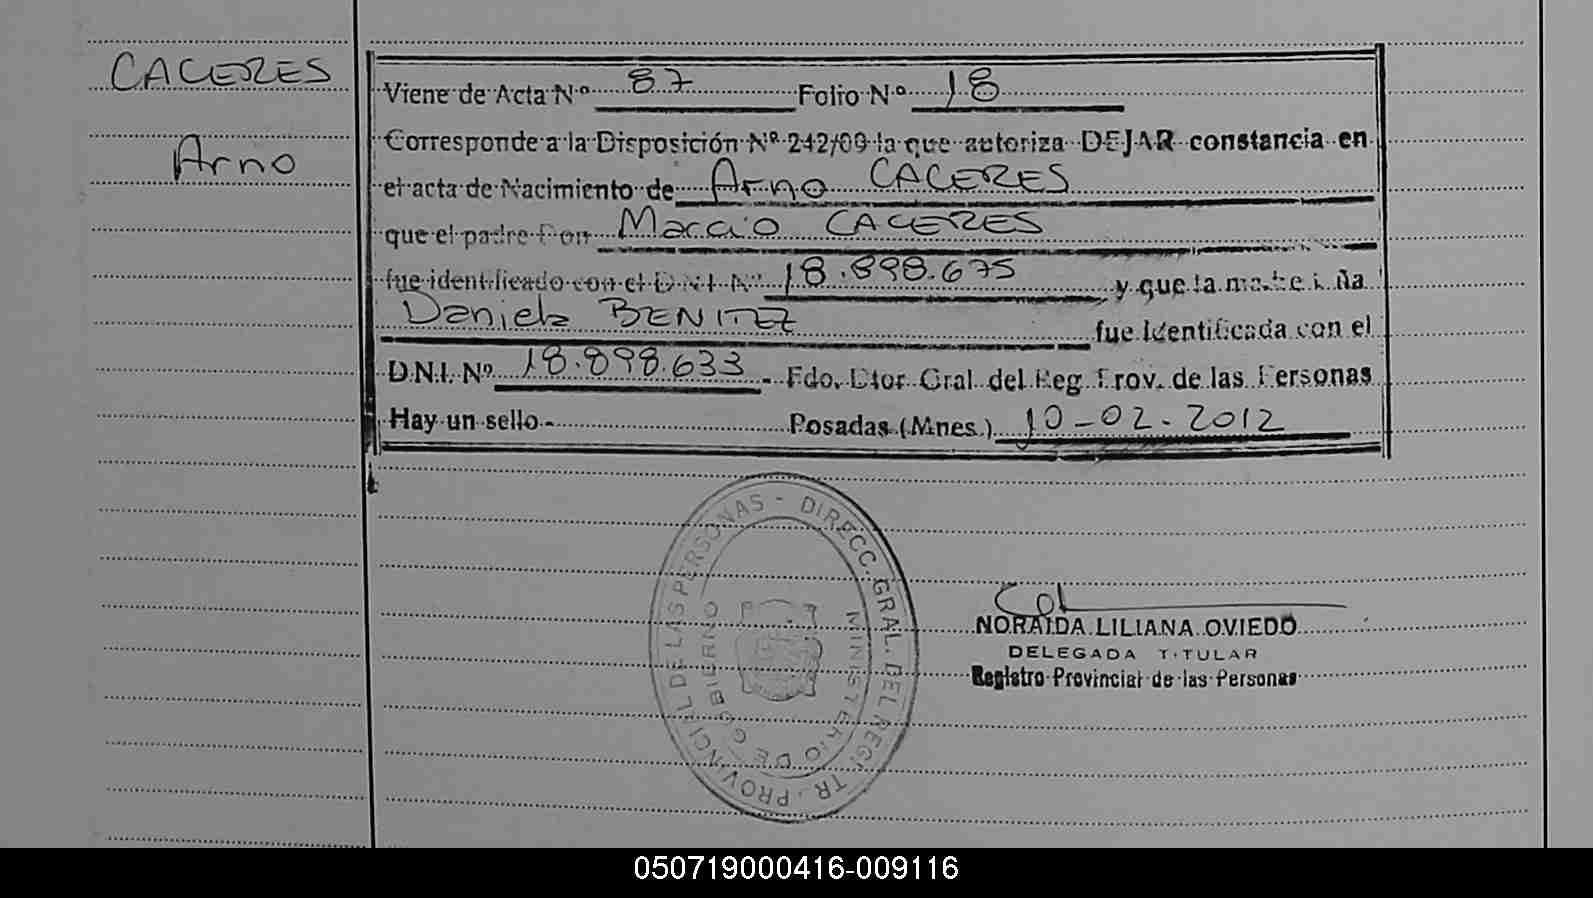 CACERES
Arno
Viene de Acta Nº 87 Folio Nº 18
Corresponde a la Disposición Nº 242/09 la que autoriza DEJAR constancia en
el acta de Nacimiento de Arno CACERES
que el padre Don Marcio CACERES
fue identificado con el D.N.I. Nº 18.898.675 y que la madre Dña
Daniela BENITEZ fue identificada con el
D.N.I. Nº 18.898.633 - Fdo. Dtor Gral. del Reg. Prov. de las Personas
Hay un sello.- Posadas (Mnes.) 10-02-2012
DIRECC. GRAL. DEL REGISTR. PROVINCIEL DE LAS PERSONAS -
MINISTERIO DE GOBIERNO
NORAIDA LILIANA OVIEDO
DELEGADA TITULAR
Registro Provincial de las Personas
050719000416-009116